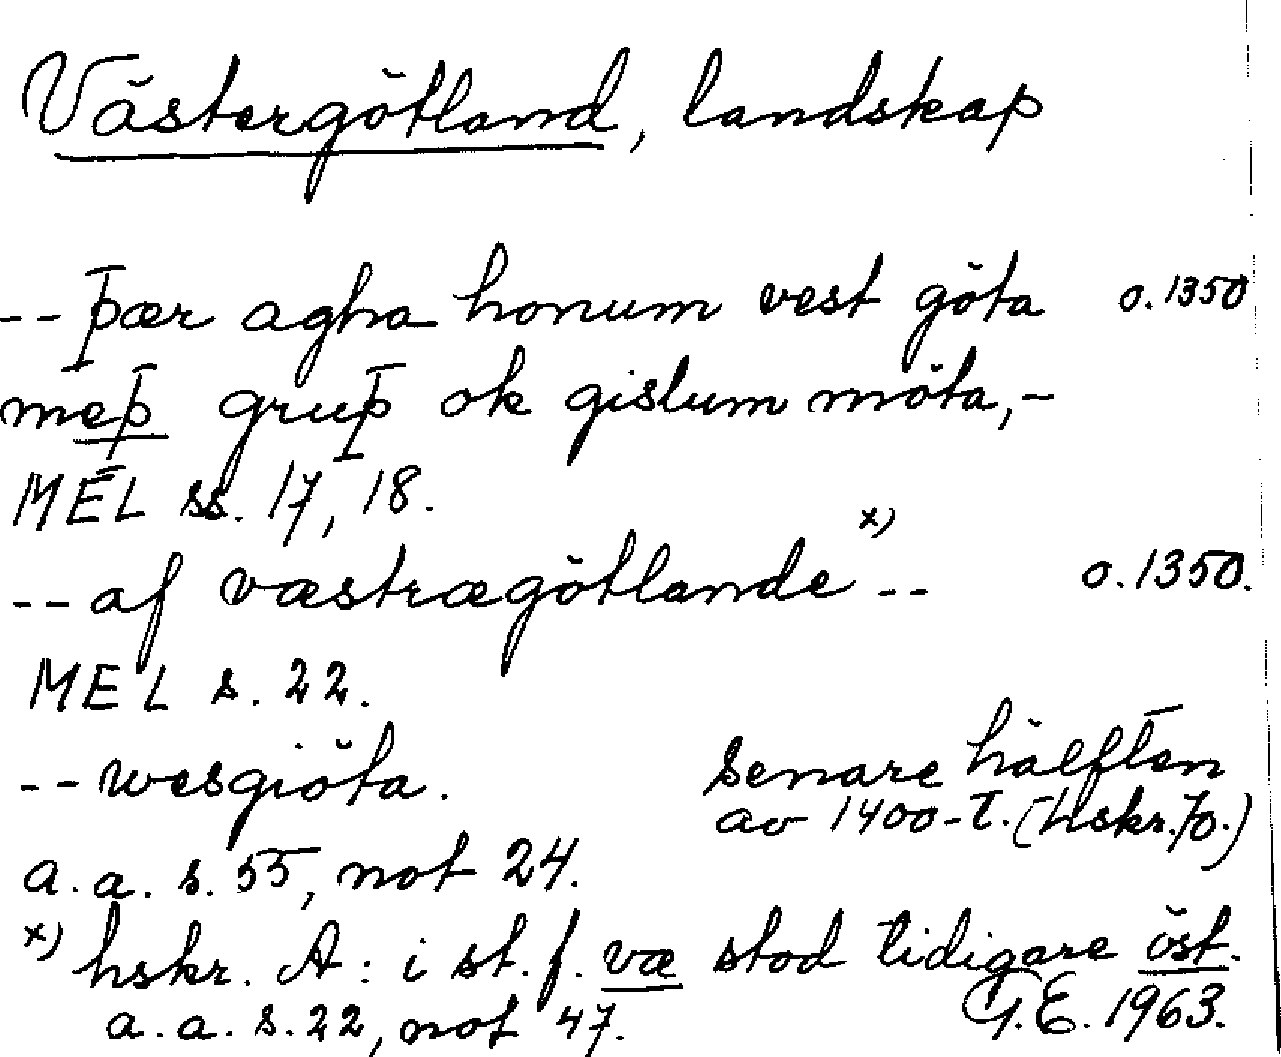 Västergötland, landskap
-- þær agha honum vest göta o. 1350
meþ gruþ ok gislum möta, -
MEL ss. 17, 18.
-- af væstrægötlande x) -- o. 1350.
MEL s. 22.
-- wesgiöta. senare hälften
av 1400-t. (hskr. )
a.a. s. 55, not 24.
x) hskr. A: i st. f. væ stod tidigare öst.
a.a. s. 22, not 47. G.E. 1963.